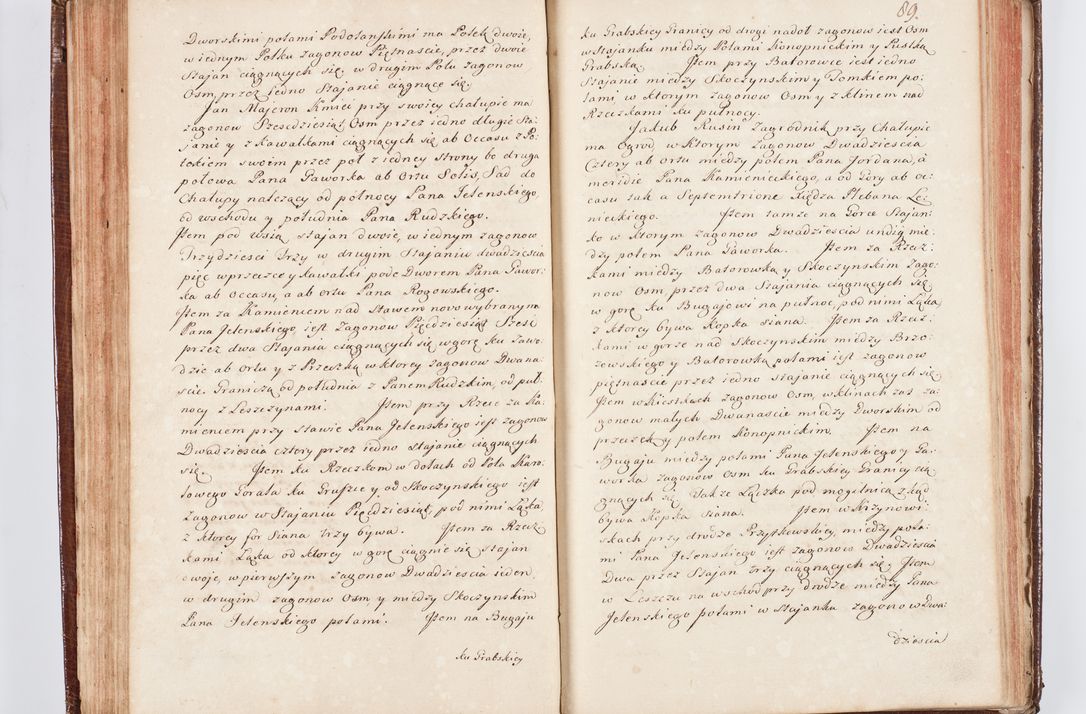 Dworskimi polami Podolanskimi ma Polek dwoje,
w iednym Polku zagonow Piętnascie, przez dwoie
Stajan ciągnących się, w drugim Polu zagonow
Osm, przez iedno Stajanie ciągnące się.
Jan Majcron Kmieć przy swoiey Chałupie ma
zagonow Szescdziesiąt Osm przez iedno długie Sta-
janie y z kawałkami ciągnących się ab Occasu z Po-
tokiem swoim przez poł z iedney strony bo druga
połowa Pana Gaworka ab Ortu Solis, Sad do
Chałupy nalezący od pułnocy Pana Jelenskiego,
od wschodu y południa Pana Rudzkiego.
Item pod wsią stajan dwoie, w iednym zagonow
Trzydziesci Trzy w drugim Stajaniu dwadziescia
pięć wprzecze y kawałki pode Dworem Pana Gawor-
ka ab Occasu, a ab ortu Pana Rogowskiego.
Item za Kamieniem nad Stawem nowo wybranym
Pana Jelenskiego iest Zagonow Pięćdziesiąt Szesć
przez dwa Stajania ciągnących się w gorę ku Zawo-
dzie ab Ortu y z Przeczką w ktorey zagonow Dwana-
scie. Graniczą od południa z Panem Rudzkim, od puł-
nocy z Leszczynami. Item przy Rzece za Ka-
mieniem przy stawie Pana Jelenskiego iest zagonow
Dwadziescia cztery przez iedno stajanie ciągnących
się. Item ku Rzeczkom w dołach od Pola Karo-
lowego Gorala ku Gruszce y od Skoczynskiego iest
Zagonow w Stajaniu Pięćdziesiąt, pod nimi Łąka,
z ktorey for Siana trzy bywa. Item za Rzecz-
kami Łąka od ktorey w gorę ciągnie się stajan
dwoje, w pierwszym zagonow Dwadziescia ieden,
w drugim zagonow Osm y między Skoczynskim
Pana Jelenskiego polami. Item na Bugaju
ku Grabskiey
89.
ku Grabskiey Granicy od drogi nadoł zagonow iest Osm
w Stajanku między Polami Konopnickim y Pustką
Grabską. Item przy Batorowce iest iedno
Stajanie między Skoczynskim y Tomkiem po-
lami w ktorym zagonow Osm y z klinem nad
Rzeczkami ku pułnocy.
Jakub Rusin Zagrodnik przy Chałupie
ma Ogrod w ktorym Zagonow Dwadziescia
Cztery ab ortu między polem Pana Jordana, a
meridie Pana Kamienieckiego, a od Gory ab oc-
casu tak a Septemtrione Xiędza Plebana Le-
nieckiego. Item tamze na Gorce Stajan-
ko w ktorym zagonow Dwadziescia undiq mię-
dzy polem Pana Gaworka. Item za Rzecz-
kami między Batorowką y Skoczynskim Zago-
now Osm przez dwa Stajania ciągnących się
w gorę ku Bugajowi na pułnoc, pod nimi Łąka
z ktorey bywa Kopka siana. Item za Rzecz-
kami w girze nad Skoczynskim między Brzo-
zowskiego y Batorowką polami iest zagonow
piętnascie przez iedno Stajanie ciągnących się
Item w Kiestkach zagonow Osm, w klinach zas za-
gonow małych Dwanascie między Dworskim od
przeczek y polem Konopnickim, Item na
Bugaju między polami Pana Jelenskiego y Ga-
worka zagonow Osm ku Grabskiey Granicy cią-
gnących się. Takze Łączka pod mogilnicą zkąd
bywa Kopka siana. Item w Krzynowi-
skach przy drodze Przytkowskiey, między pola-
mi Pana Jelenskiego iest zagonow Dwadziescia
Dwa przez Stajan trzy ciągnących się. Item
w Leszczu na wschod przy drodze między Pana
Jelenskiego polami w Stajanku zagonow Dwa-
dziescia